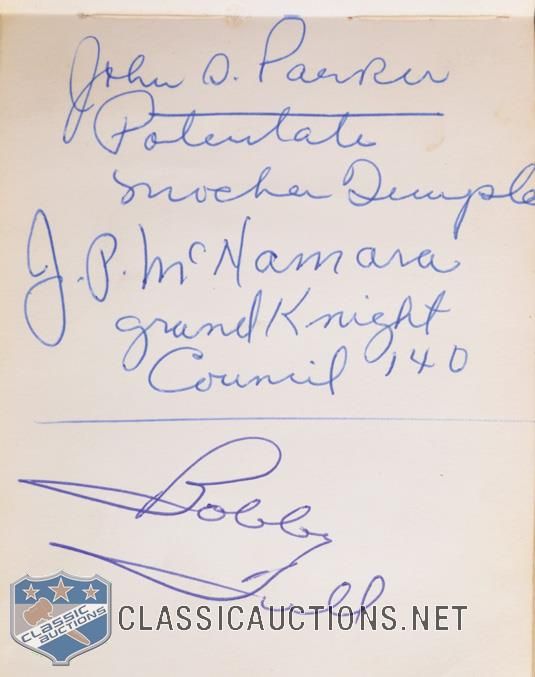 John D. Parker
Potentate
Mocha Temple
J. P. McNamara
grand Knight
Council 140
Bobby
Hull
CLASSIC
AUCTIONS
CLASSICAUCTIONS.NET